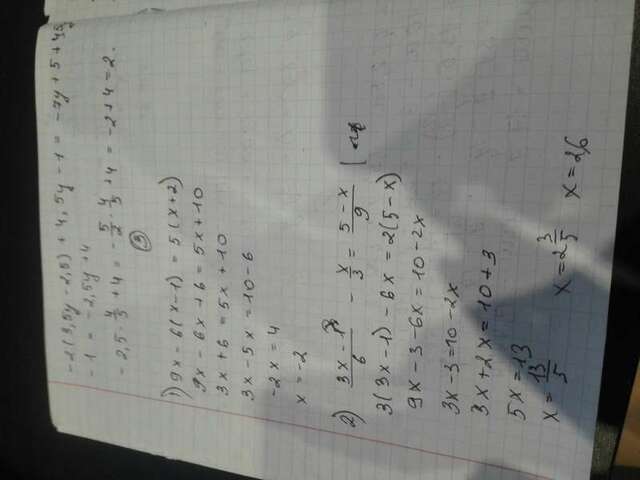 -2(3,5y-2,5)+4,5y-1=-7y+5+4,5
-1=-2,5y+4
-2,5·4/5+4=-5/2·4/5+4=-2+4=2.
③
1) 9x-6(x-1)=5(x+2)
9x-6x+6=5x+10
3x+6=5x+10
3x-5x=10-6
-2x=4
x=-2
2) 3x-1/6 - x/3 = 5-x/9
3(3x-1)-6x=2(5-x)
9x-3-6x=10-2x
3x-3=10-2x
3x+2x=10+3
5x=13
x=13/5 x=2 3/5 x=2,6